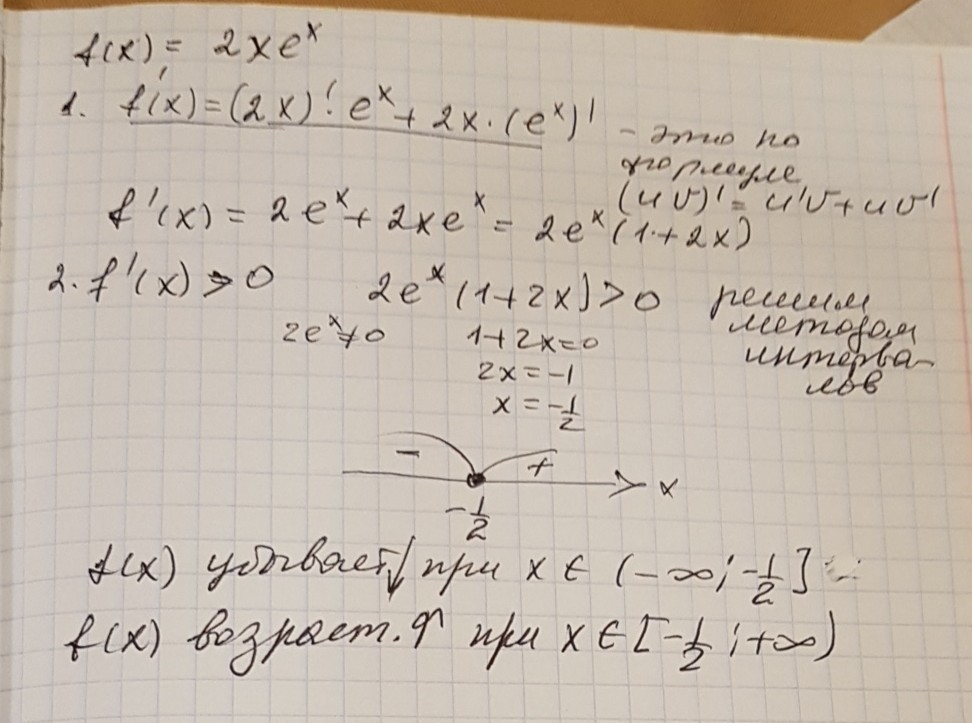 f(x) = 2xeˣ
1. f'(x) = (2x)' eˣ + 2x · (eˣ)' – это по
формуле
(uv)' = u'v + uv'
f'(x) = 2eˣ + 2xeˣ = 2eˣ(1+2x)
2. f'(x) > 0 2eˣ(1+2x) > 0 решим
методом
интерва-
лов
2eˣ ≠ 0 1+2x=0
2x = -1
x = -1/2
- + x
-1/2
f(x) убывает ↓ при x ∈ (-∞; -1/2]
f(x) возраст. ↑ при x ∈ [-1/2; +∞)